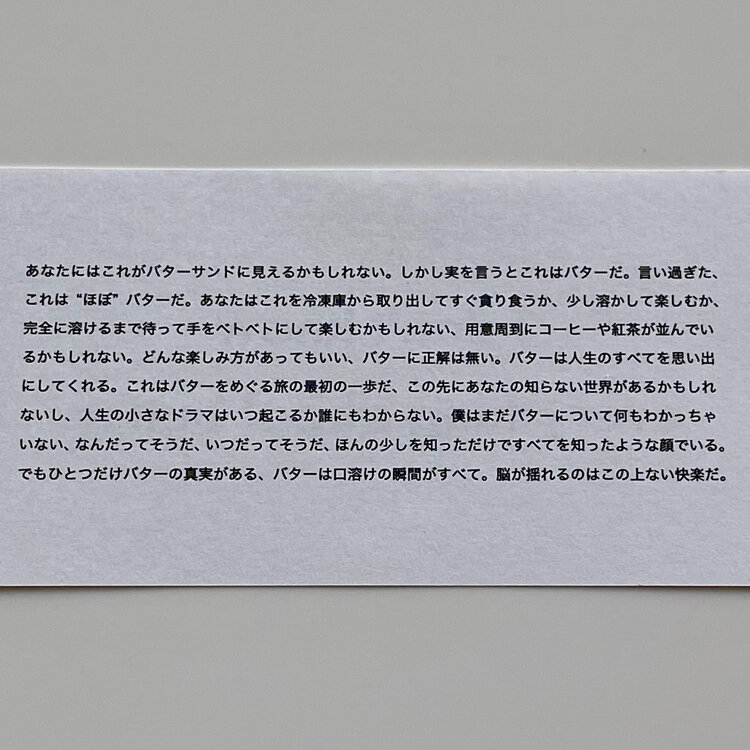 あなたにはこれがバターサンドに見えるかもしれない。しかし実を言うとこれはバターだ。言い過ぎた、
これは“ほぼ”バターだ。あなたはこれを冷凍庫から取り出してすぐ貪り食うか、少し溶かして楽しむか、
完全に溶けるまで待って手をベトベトにして楽しむかもしれない、用意周到にコーヒーや紅茶が並んでい
るかもしれない。どんな楽しみ方があってもいい、バターに正解は無い。バターは人生のすべてを思い出
にしてくれる。これはバターをめぐる旅の最初の一歩だ、この先にあなたの知らない世界があるかもしれ
ないし、人生の小さなドラマはいつ起こるか誰にもわからない。僕はまだバターについて何もわかっちゃ
いない、なんだってそうだ、いつだってそうだ、ほんの少しを知っただけですべてを知ったような顔でいる。
でもひとつだけバターの真実がある、バターは口溶けの瞬間がすべて。脳が揺れるのはこの上ない快楽だ。